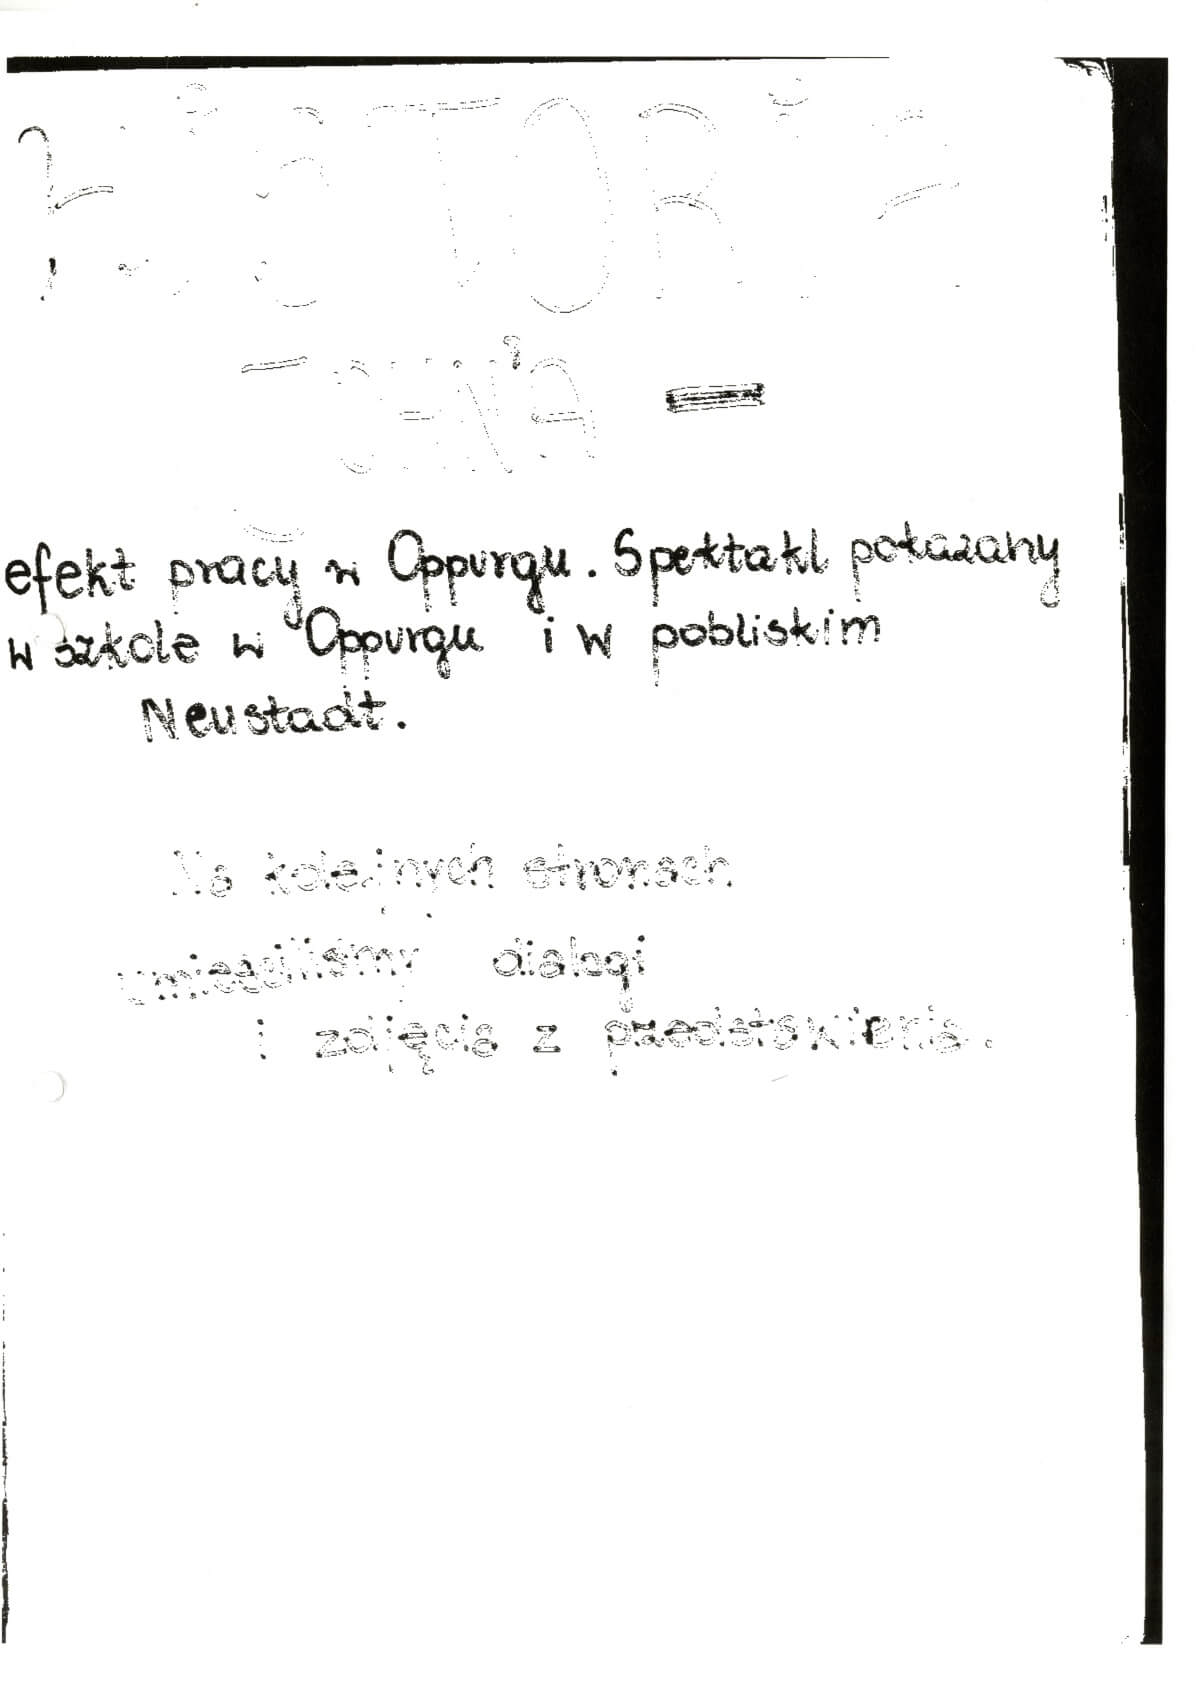 HISTORIA
efekt pracy w Oppurgu. Spektakl pokazany
w szkole w Oppurgu i w pobliskim
Neustadt.
Na kolejnych stronach
umieściliśmy dialogi
i zdjęcia z przedstawienia.